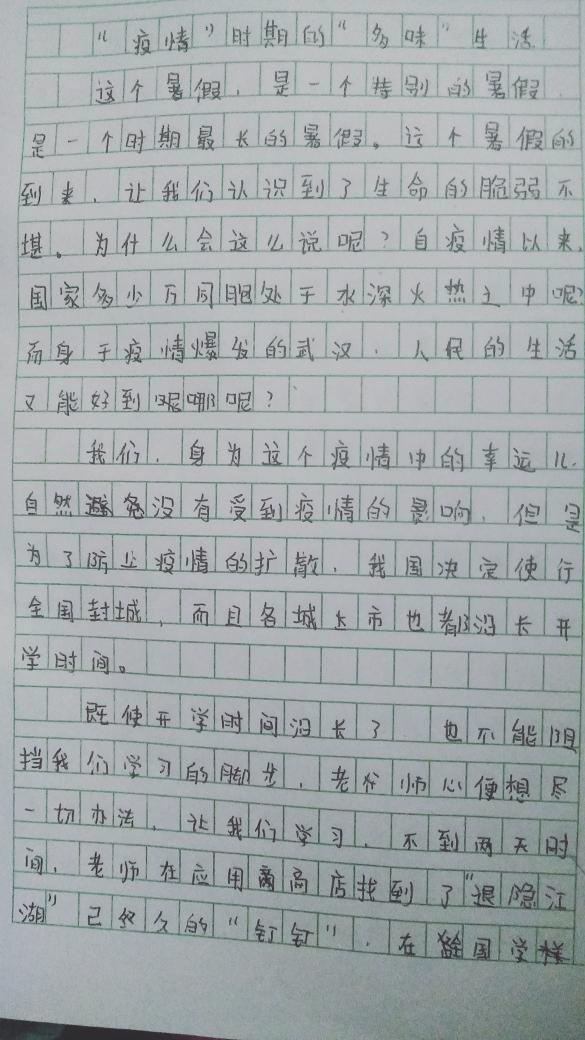 “疫情”时期的“多味”生活
这个暑假,是一个特别的暑假,
是一个时期最长的暑假。这个暑假的
到来,让我们认识到了生命的脆弱不
堪。为什么会这么说呢?自疫情以来,
国家多少万同胞处于水深火热之中呢?
而身于疫情爆发的武汉,人民的生活
又能好到呢哪呢?
我们,身为这个疫情中的幸运儿,
自然避免没有受到疫情的影响,但是
为了防止疫情的扩散,我国决定使行
全国封城,而且各城市也都沿长开
学时间。
既使开学时间沿长了,也不能阻
挡我们学习的脚步,老师心便想尽
一切办法,让我们学习,不到两天时
间,老师在应用商店找到了“退隐江
湖”已经久的“钉钉”,在国学样